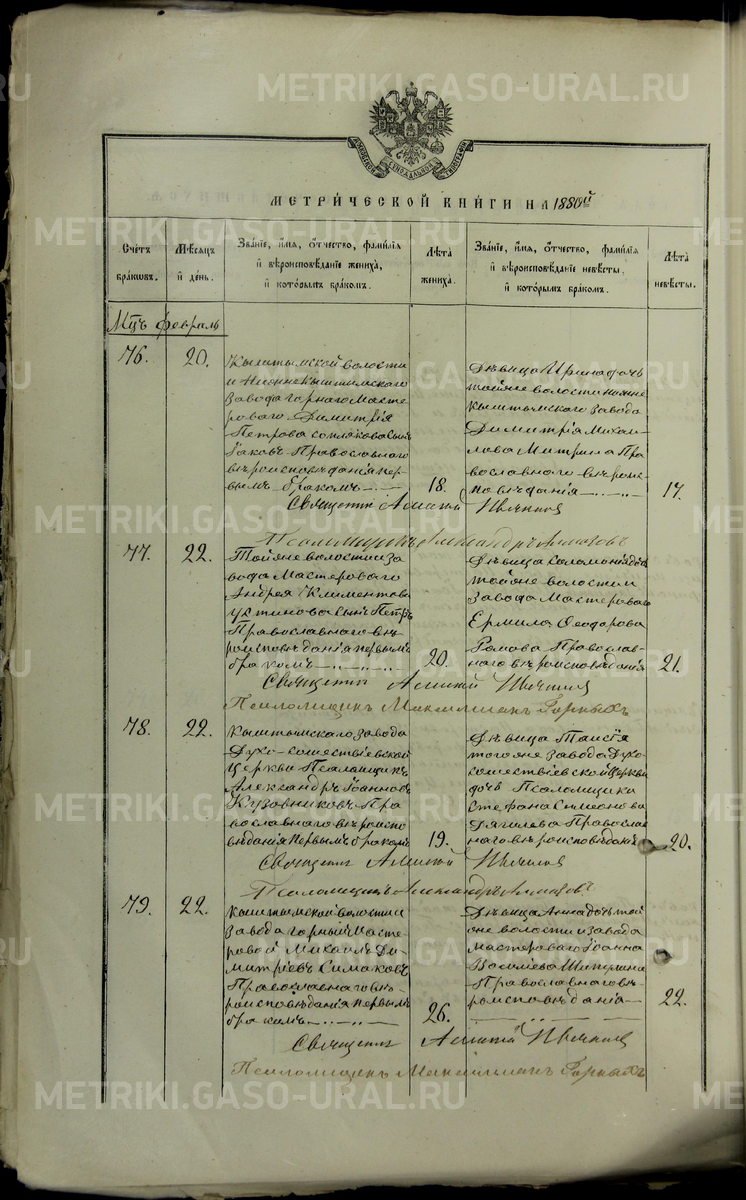 METRIKI.GASO-URAL.RU
МЕТРИ́ЧЕСКОЙ КНИ́ГИ НА 1880й
Счетъ браковъ.
Мѣсяцъ и день.
Званіе, имя, отчество, фамилія и вѣроисповѣданіе жениха, и которымъ бракомъ.
Лѣта жениха.
Званіе, имя, отчество, фамилія и вѣроисповѣданіе невѣсты, и которымъ бракомъ.
Лѣта невѣсты.
Мцъ февраль
76.
20.
Кыштымской волости
и Нижнекыштымскаго
завода горнаго масте
роваго Димитрія
Петрова Соплякова сынъ
Іаковъ Православнаго
вѣроисповѣданія пер
вымъ бракомъ
18.
Дѣвица Ирина дочь
тойже волости нижне
кыштымскаго завода
Димитрія Михаи
лова Митрина Пра
вославнаго вѣроис
повѣданія
17.
Священникъ Алексій
Псаломщикъ Александръ Алмазовъ
77.
22.
Тойже волости и за
вода Мастероваго
Андрея Климентова
Устинова сынъ Петръ
Православнаго вѣ
роисповѣданія первымъ
бракомъ
20.
Дѣвица Соломонія дочь
тойже волости и
завода Мастероваго
Ермила Ѳеодорова
Ромова Православ
наго вѣроисповѣданія
21.
Священникъ Алексій
Псаломщикъ Максиміліанъ Горныхъ
78.
22.
Кыштымскаго завода
Духо-сошествіевской
церкви Псаломщикъ
Александръ Іоанновъ
Кузовниковъ Пра
вославнаго вѣроиспо
вѣданія первымъ бракомъ
19.
Дѣвица Таисія
тогоже завода Духо
сошествіевской церкви
дочь Псаломщика
Стефана Симеонова
Дягилева Православ
наго вѣроисповѣданія
20.
Священникъ Алексій
Псаломщикъ Александръ Алмазовъ
79.
22.
Кыштымской волости и
завода горный Масте
ровой Михаилъ Ди
митріевъ Симаковъ
Православнаго вѣ
роисповѣданія первымъ
бракомъ
26.
Дѣвица Анна дочь той
же волости и завода
мастероваго Іоанна
Василіева
Православнаго вѣ
роисповѣданія
22.
Священникъ Алексій
Псаломщикъ Максиміліанъ Горныхъ